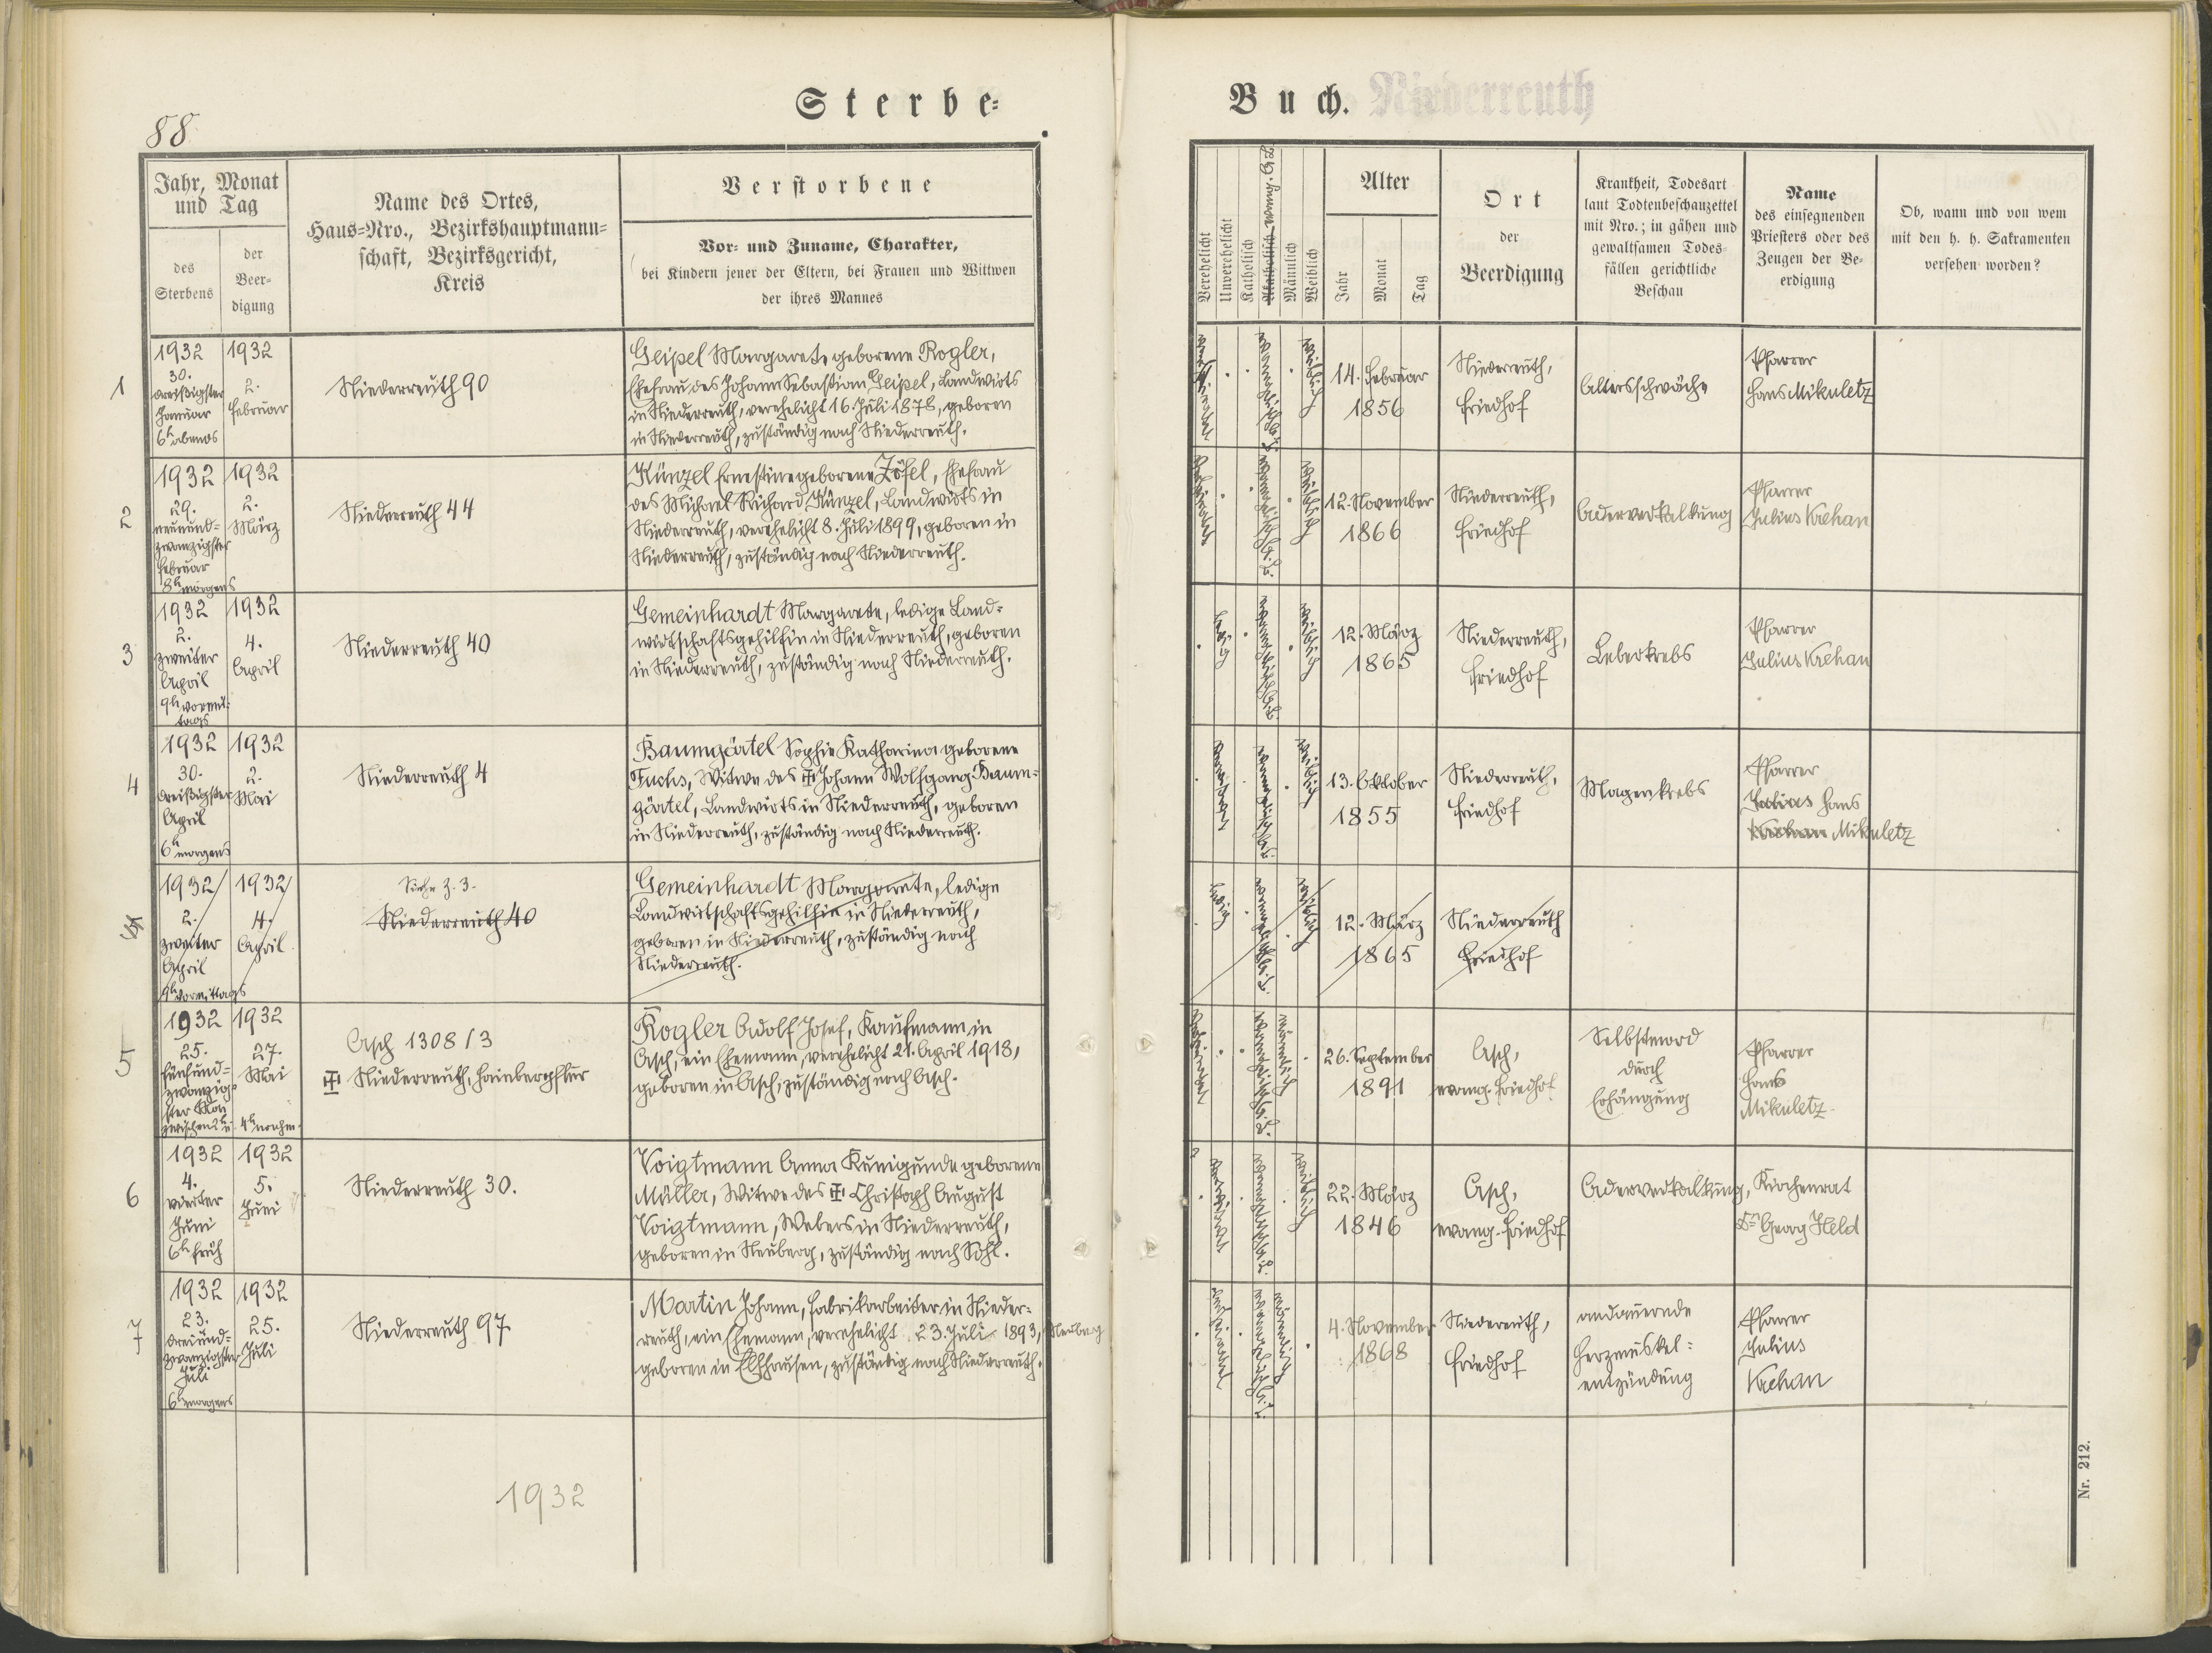 88
Sterbe=
Buch. Niederreuth
Jahr, Monat
und Tag
des
Sterbens
der
Beer=
digung
Name des Ortes,
Haus=Nro., Bezirkshauptmann=
schaft, Bezirksgericht,
Kreis
Verstorbene
Vor= und Zuname, Charakter,
bei Kindern jener der Eltern, bei Frauen und Wittwen
der ihres Mannes
Verehelicht
Unverehelicht
Katholisch
Akatholisch evang. A.B.
Männlich
Weiblich
Alter
Jahr
Monat
Tag
Ort
der
Beerdigung
Krankheit, Todesart
laut Todtenbeschauzettel
mit Nro.; in gähen und
gewaltsamen Todes=
fällen gerichtliche
Beschau
Name
des einsegnenden
Priesters oder des
Zeugen der Be=
erdigung
Ob, wann und von wem
mit den h. h. Sakramenten
versehen worden?
1
1932
30.
dreißigster
Januar
6h abends
1932
2.
Februar
Niederreuth 90
Geipel Margareta geborene Rogler,
Ehefrau des Johann Sebastian Geipel, Landwirts
in Niederreuth, verehelicht 16. Juli 1878, geboren
in Niederreuth, zuständig nach Niederreuth.
weiblich
14. Februar
1856
Niederreuth,
Friedhof
Altersschwäche
Pfarrer
Hans Mikuletz
2
1932
29.
neunund=
zwanzigster
Februar
8h morgens
1932
2.
März
Niederreuth 44
Künzel Ernestine geborene Zöfel, Ehefrau
des Michael Richard Künzel, Landwirts in
Niederreuth, verehelicht 8. Juli 1899, geboren in
Niederreuth, zuständig nach Niederreuth.
weiblich
12. November
1866
Niederreuth,
Friedhof
Aderverkalkung
Pfarrer
Julius Krehan
3
1932
2.
zweiter
April
9h vormit=
tags
1932
4.
April
Niederreuth 40
Gemeinhardt Margarete, ledige Land=
wirtschaftsgehilfin in Niederreuth, geboren
in Niederreuth, zuständig nach Niederreuth.
ledig
weiblich
12. März
1865
Niederreuth,
Friedhof
Leberkrebs
Pfarrer
Julius Krehan
4
1932
30.
dreißigster
April
6h morgens
1932
2.
Mai
Niederreuth 4
Baumgärtel Sophie Katharina geborene
Fuchs, Witwe des Johann Wolfgang Baum=
gärtel, Landwirts in Niederreuth, geboren
in Niederreuth, zuständig nach Niederreuth.
weiblich
13. Oktober
1855
Niederreuth,
Friedhof
Magenkrebs
Pfarrer
Julius Hans
Krehan Mikuletz
1932
2.
zweiter
April
9h vormittags
1932
4.
April
Siehe Z. 3.
Niederreuth 40
Gemeinhardt Margarete, ledige
Landwirtschaftsgehilfin in Niederreuth,
geboren in Niederreuth, zuständig nach
Niederreuth.
ledig
weiblich
12. März
1865
Niederreuth
Friedhof
5
1932
25.
fünfund=
zwanzig=
ster Mai
1932
27.
Mai
4h nachm.
Asch 1308/3
Niederreuth, Hainbergflur
Rogler Adolf Josef, Kaufmann in
Asch, ein Ehemann, verehelicht 21. April 1918,
geboren in Asch, zuständig nach Asch.
männlich
26. September
1891
Asch,
evang. Friedhof
Selbstmord
durch
Erhängung
Pfarrer
Hans
Mikuletz.
6
1932
4.
vierter
Juni
6h früh
1932
5.
Juni
Niederreuth 30.
Voigtmann Anna Kunigunde geborene
Müller, Witwe des Christoph August
Voigtmann, Webers in Niederreuth,
geboren in Neuberg, zuständig nach Sohl.
weiblich
22. März
1846
Asch,
evang. Friedhof
Aderverkalkung,
Kirchenrat
Dr. Georg Held
7
1932
23.
dreiund=
zwanzigster
Juli
6h morgens
1932
25.
Juli
Niederreuth 97
Martin Johann, Fabrikarbeiter in Nieder=
reuth, ein Ehemann, verehelicht 23. Juli 1893, Neuberg
geboren in Elfhausen, zuständig nach Niederreuth.
männlich
4. November
1868
Niederreuth,
Friedhof
andauernde
Herzmuskel=
entzündung
Pfarrer
Julius
Krehan
1932
Nr. 212.